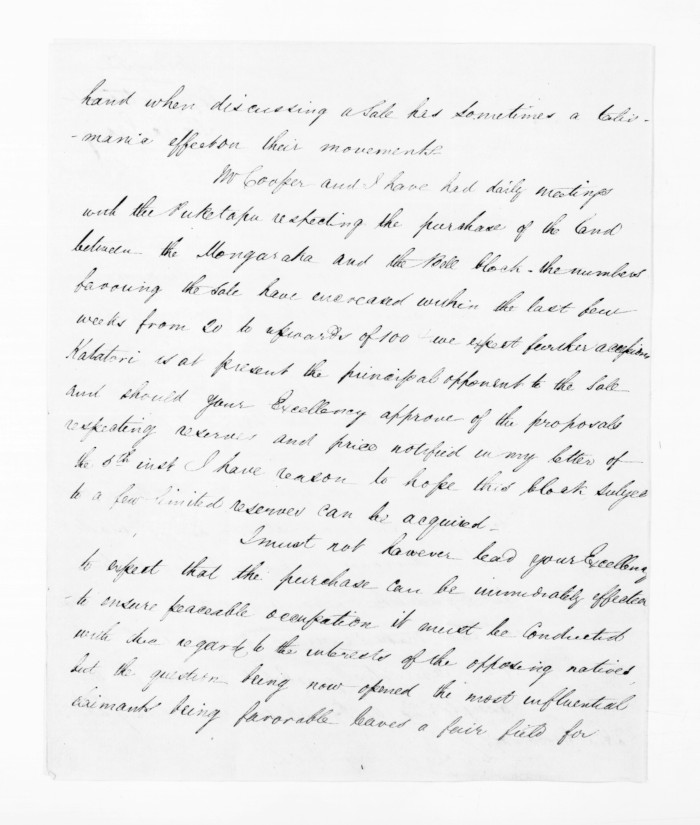 hand when discussing a Sale has sometimes a talis-
-manic effect on their movements.
Mr Cooper and I have had daily meetings
with the Puketapu respecting the purchase of the land
between the Mongaraka and the Bell block - the numbers
favouring the Sale have increased within the last few
weeks from 20 to upwards of 100 we expect further accessions
Katatori is at present the principal opponent to the Sale
and should your Excellency approve of the proposals
respecting reserves and price notified in my letter of
the 8th inst I have reason to hope this block subject
to a few limited reserves can be acquired -
I must not however lead your Excellency
to expect that the purchase can be immediately effected
- to ensure peaceable occupation it must be conducted
with due regard to the interests of the opposing natives,
but the question being now opened the most influential
claimants being favorable leaves a fair field for